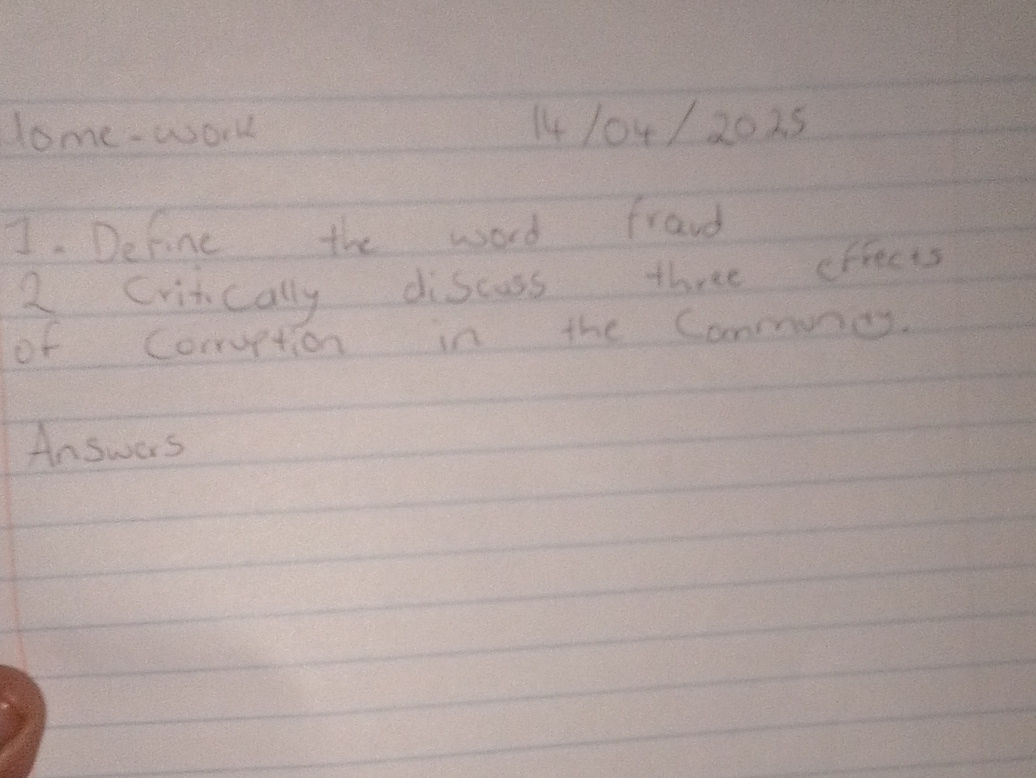 Home-work 14/04/2025
1. Define the word fraud
2 Critically discuss three effects
of Corruption in the Community.
Answers